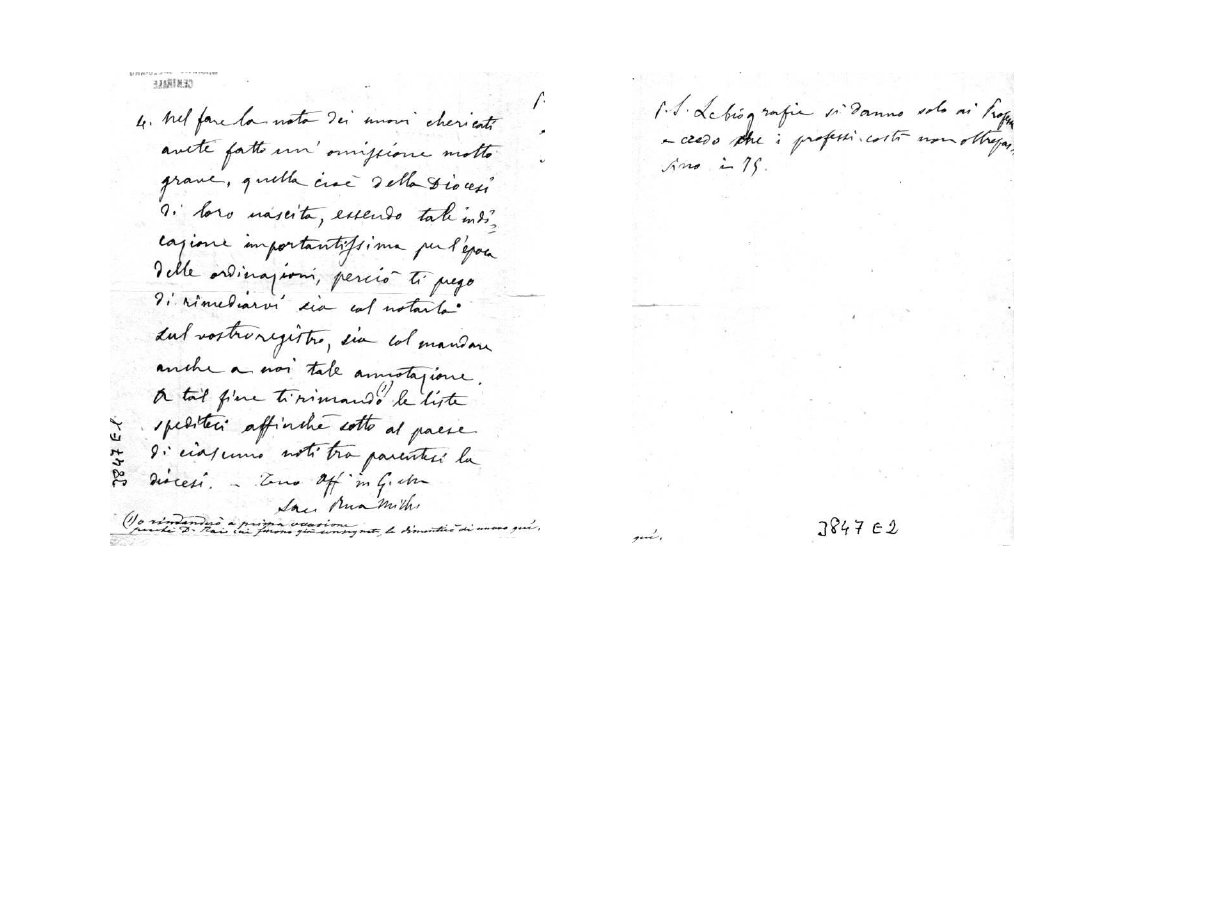 CENTRALE
4. Nel fare la nota dei nuovi chericati
avete fatto un' omissione molto
grave, quella cioè della Diocesi
di loro nascita, essendo tale indi-
cazione importantissima per l'epoca
delle ordinazioni, perciò ti prego
di rimediarvi sia col notarla
sul vostro registro, sia col mandare
anche a noi tale annotazione.
A tal fine ti rimando (1) le liste
spediteci affinchè sotto al paese
di ciascuno noti tra parentesi la
diocesi. – Tuo Aff in G. e M
Sac. Rua Miche
(1) o rimanderò a prima occasione
perchè D. cui furono già consegnate, le dimenticò di nuovo qui.
3847 E1
P. S. Le biografie si danno solo ai Profes
e credo che i professi costì non oltrepas-
sino i 75.
qui.
3847 E2